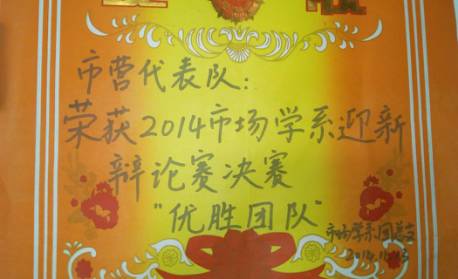 市营代表队:
荣获2014市场学系迎新
辩论赛决赛
"优胜团队"
市场学系团总支